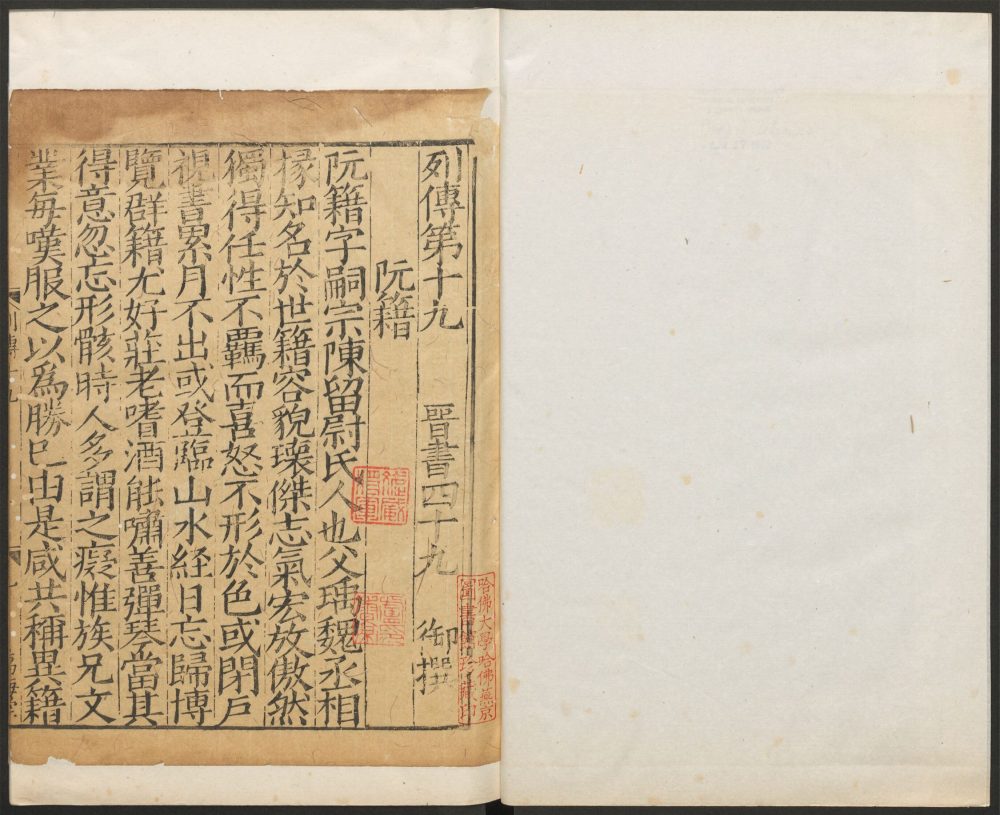 列傳第十九 晉書四十九 御撰
阮籍
阮籍字嗣宗陳留尉氏人也父瑀魏丞相
掾知名於世籍容貌瓌傑志氣宏放傲然
獨得任性不羈而喜怒不形於色或閉戶
視書累月不出或登臨山水経日忘歸博
覽群籍尤好莊老嗜酒能嘯善彈琴當其
得意忽忘形骸時人多謂之癡惟族兄文
業每嘆服之以爲勝已由是咸共稱異籍
哈佛大學哈佛燕京
圖書館珍藏印